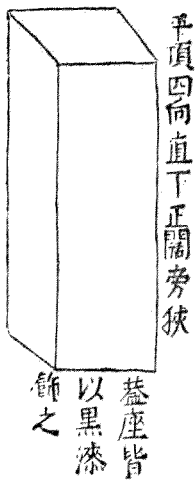 平頂四向直下正闊旁狹
蓋座皆
以黑漆
飾之